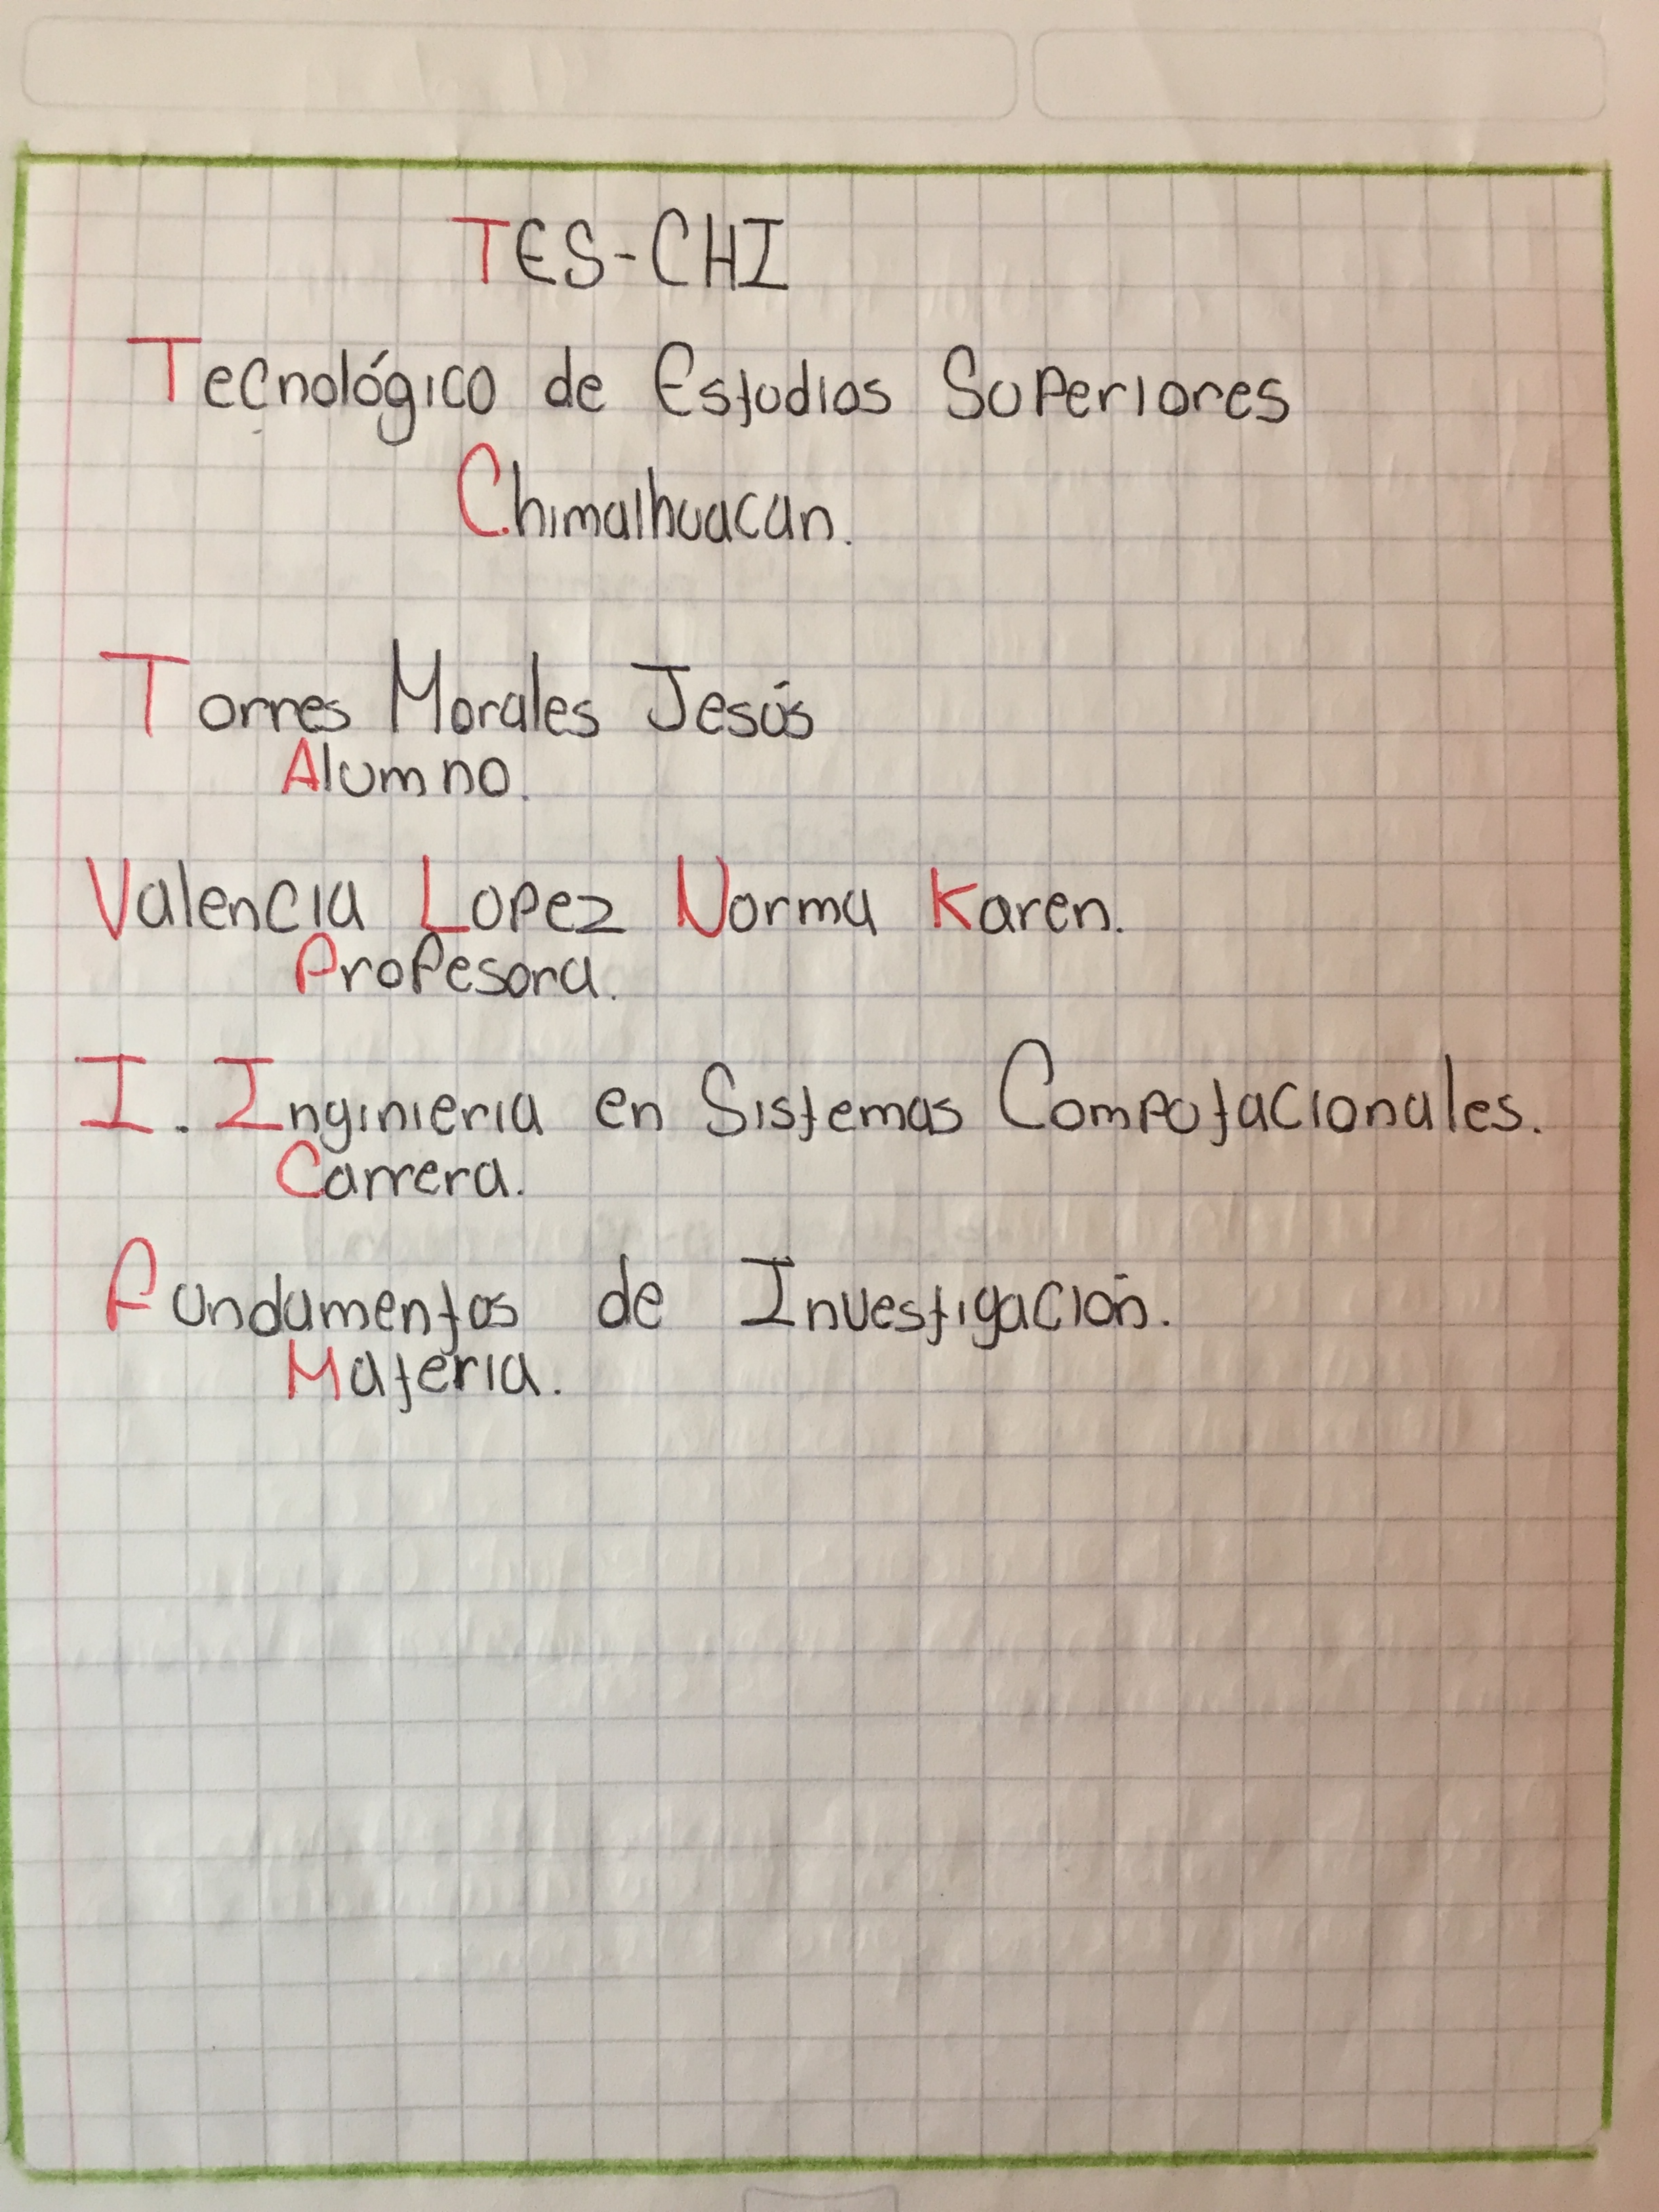 TES-CHI
Tecnológico de Estudios Superiores
Chimalhuacan.
Torres Morales Jesús
Alumno.
Valencia Lopez Norma Karen.
Profesora.
I. Inginieria en Sistemas Computacionales.
Carrera.
Fundamentos de Investigación.
Materia.